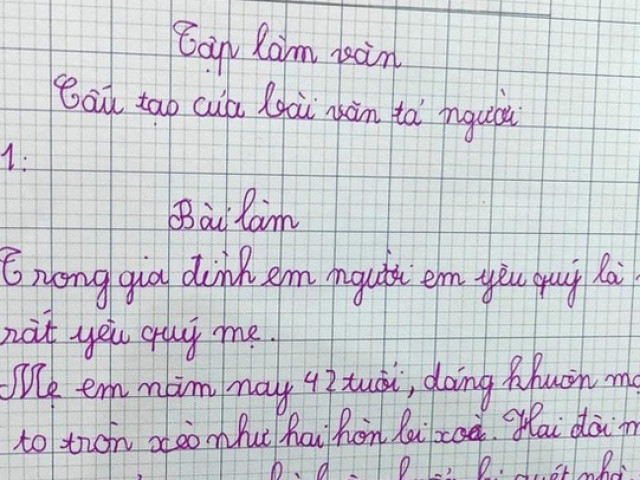 Tập làm văn
Cấu tạo của bài văn tả người
1:
Bài làm
Trong gia đình em người em yêu quý là
rất yêu quý mẹ.
Mẹ em năm nay 42 tuổi, dáng khuôn
to tròn xoè như hai hòn bi xoè. Hai đôi